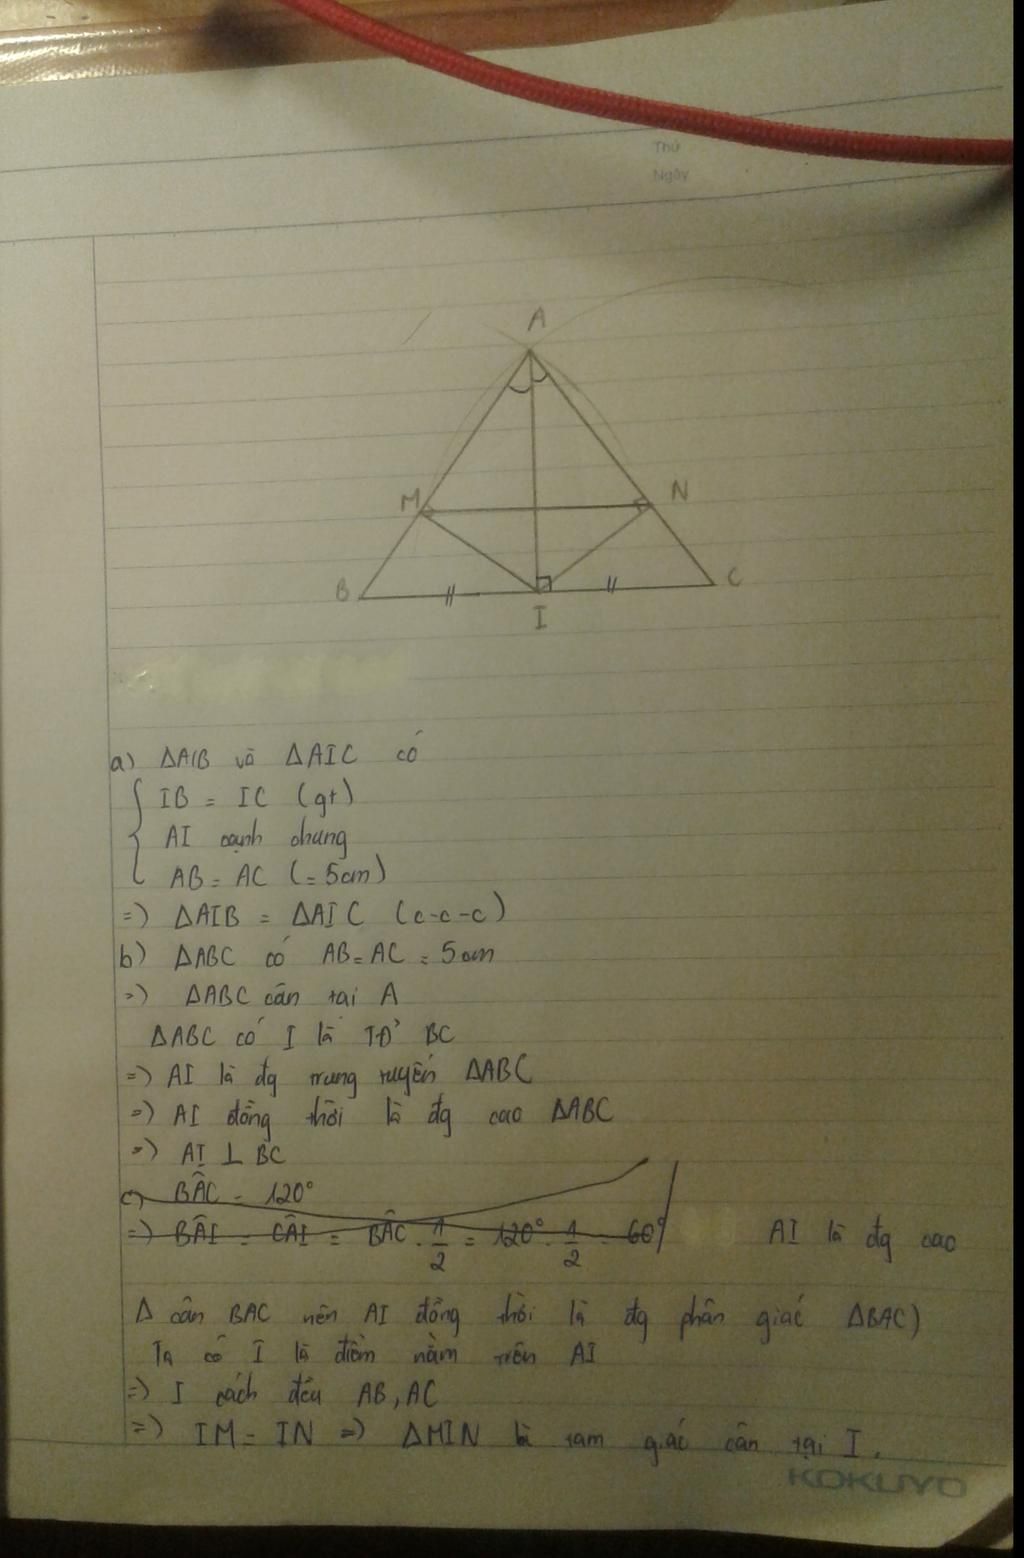 Thứ
Ngày
A
M
N
B
C
I
a) ΔAIB và ΔAIC có
IB = IC (gt)
AI cạnh chung
AB = AC (= 5cm)
=) ΔAIB = ΔAIC (c-c-c)
b) ΔABC có AB = AC = 5cm
=) ΔABC cân tại A
ΔABC có I là TĐ' BC
=) AI là đg trung tuyến ΔABC
=) AI đồng thời là đg cao ΔABC
=) AI ⊥ BC
c) BÂC = 120°
=) BÂI = CÂI = BÂC . 1/2 = 120° . 1/2 = 60° AI là đg cao
Δ cân BAC nên AI đồng thời là đg phân giác ΔBAC)
Ta có I là điểm nằm trên AI
=) I cách đều AB, AC
=) IM = IN =) ΔMIN là tam giác cân tại I.
KOKUYO